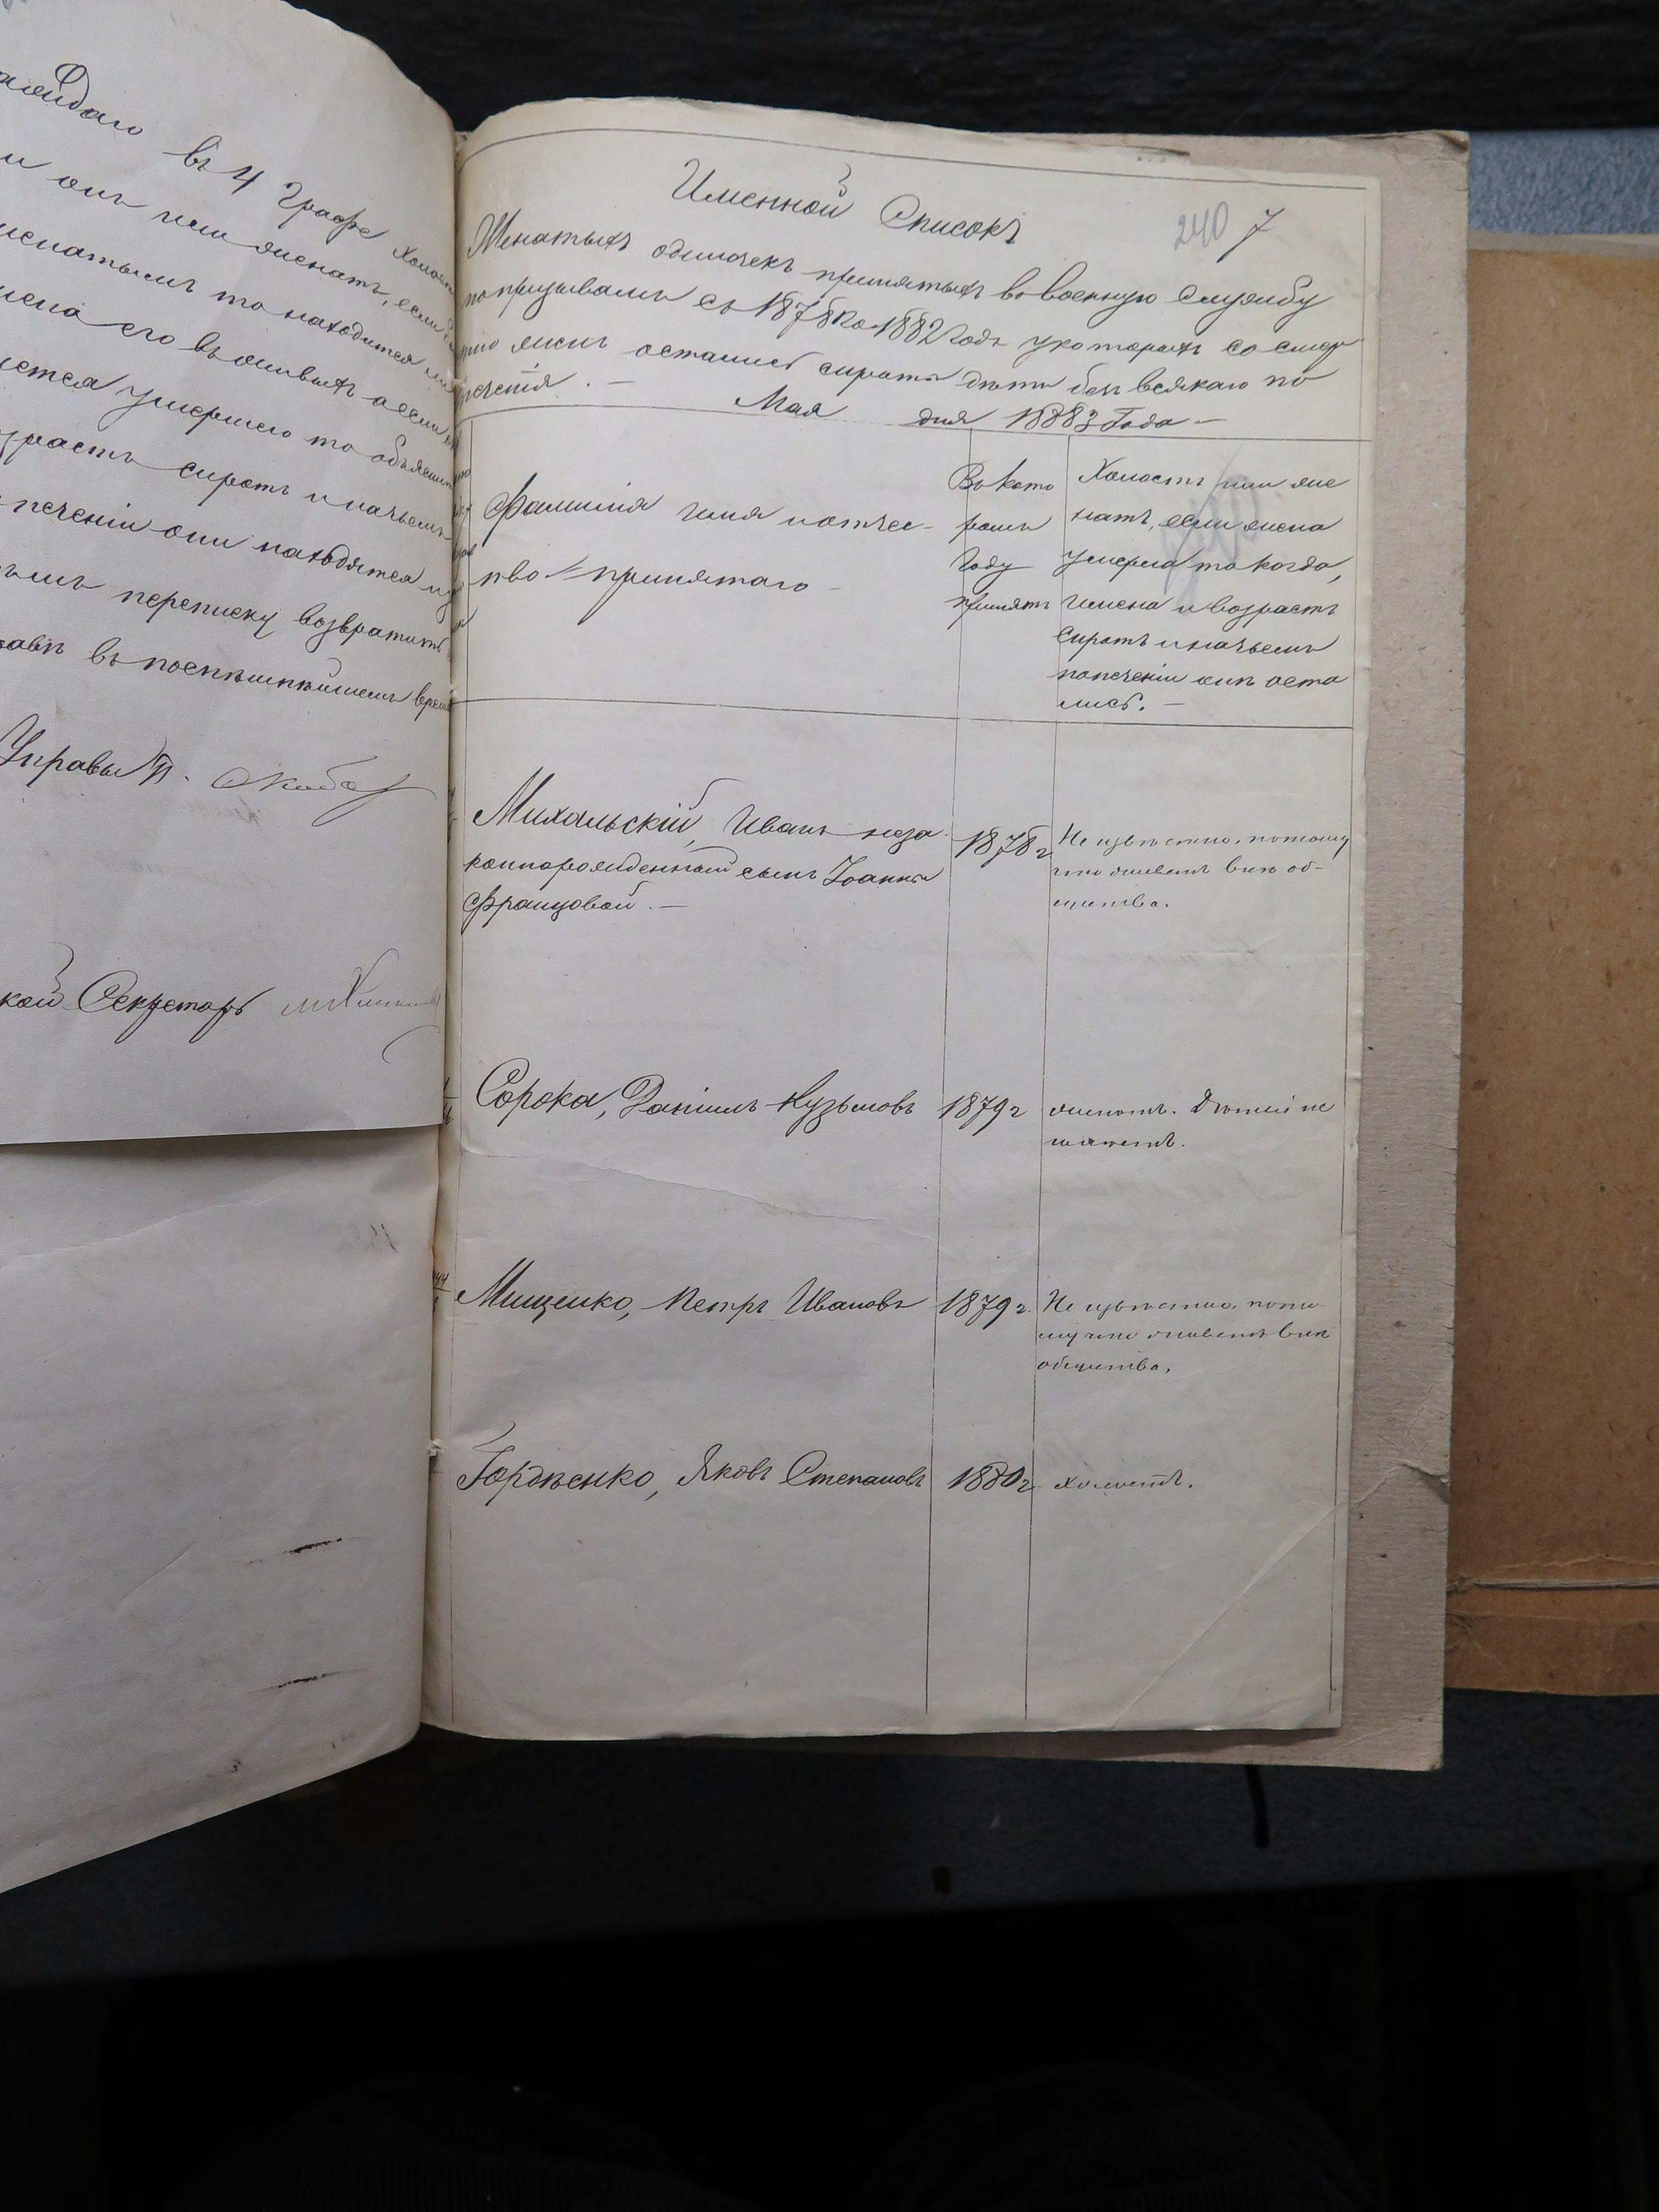 въ 4 графе холост
он или женатъ, если
женатымъ то находится
жена его въ живыхъ а если
умершею то объяснит
возрастъ сиротъ и на чьемъ
печеніи они находятся и
переписку возвратить
въ поспѣшнѣйшемъ врем
Управы
кой Секретарь
240 7
Именной Списокъ
Женатыхъ одиночекъ принятыхъ въ военную службу
по призывамъ съ 1878 по 1882 годъ у которыхъ со смер
тію женъ остались сироты дѣти безъ всякаго по
печетія. —
Мая дня 1883 Года —
Фамилія имя и отчес-
тво принятаго —
Въ кото
ромъ
Году
принятъ
Холостъ или же
натъ, если жена
умерла то когда,
имена и возрастъ
сиротъ и на чьемъ
попеченіи они оста
лись. —
Михальскій, Иванъ неза
коннорожденный сынъ Іоанны
Францовой. —
1878 г
Не извѣстно, потому
что живетъ внѣ об-
щества.
Сорока, Даніилъ Кузьмовъ
1879 г
женатъ. Дѣтей не
имѣетъ.
Мищенко, Петръ Ивановъ
1879 г.
Не извѣстно, пото
му что живетъ внѣ
общества.
Гордѣенко, Яковъ Степановъ
1880 г
холостъ.